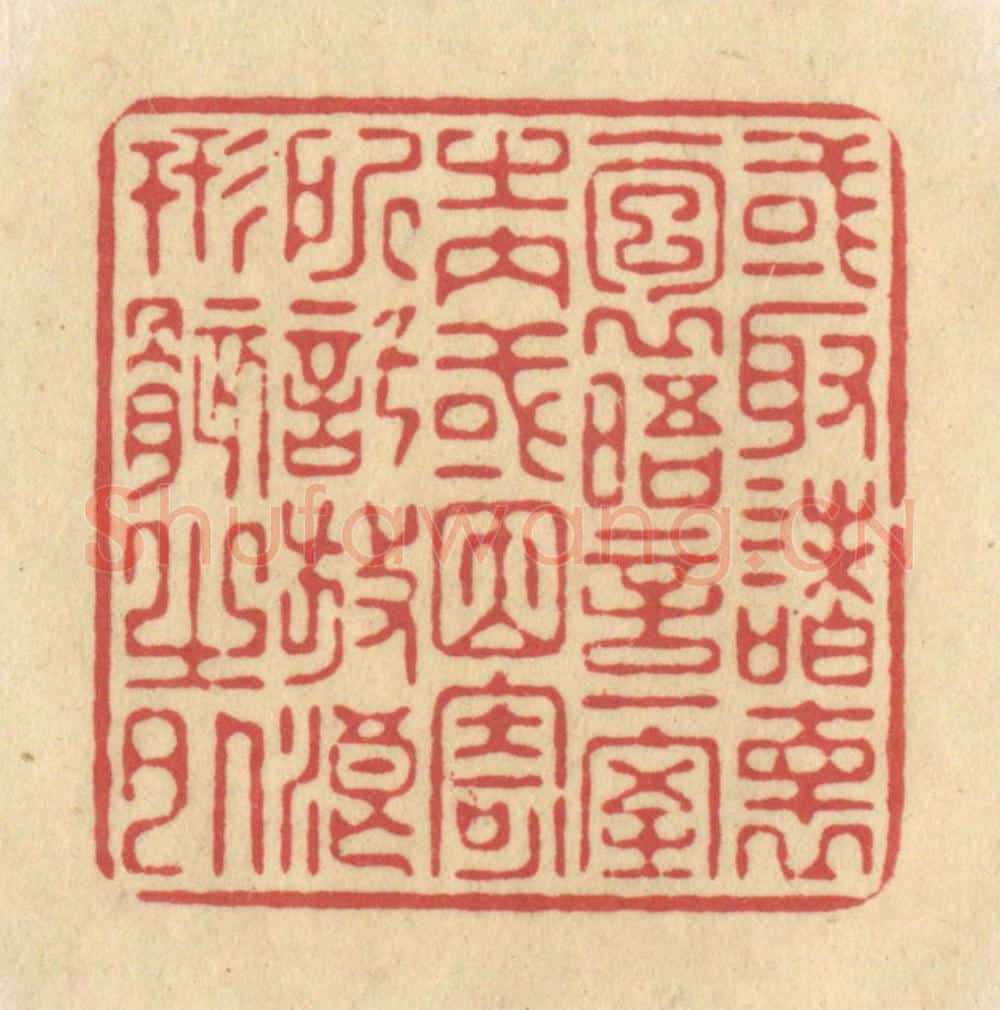 或取諸懷
抱晤言一室
之內或因寄
所託放浪
形骸之外
Shufawang.CN